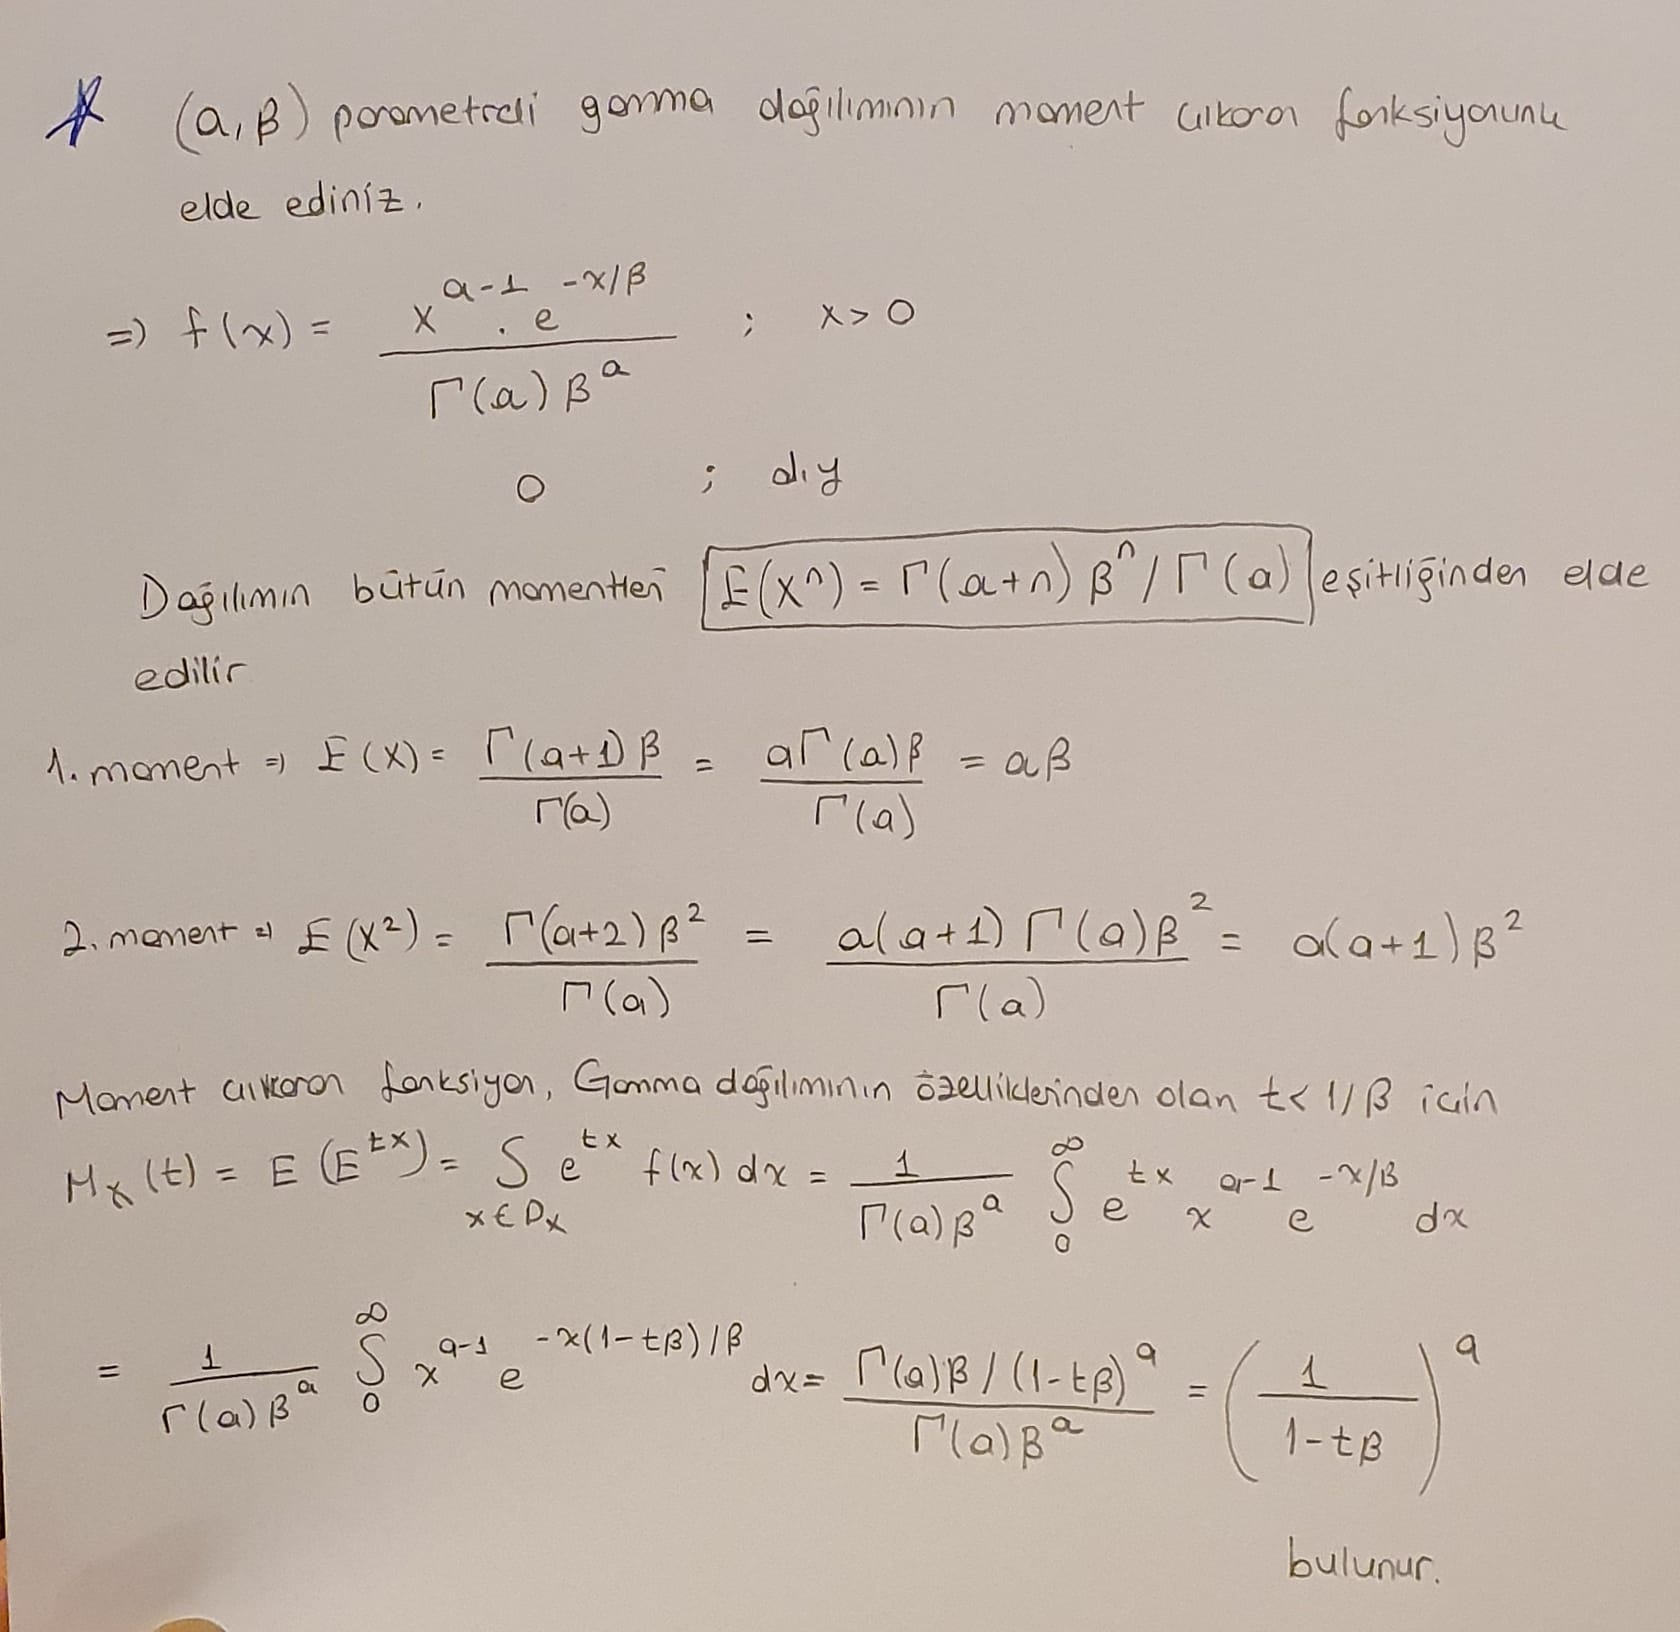 (a,β) parametreli gamma dağılımının moment çıkaran fonksiyonunu
elde ediniz.
=> f(x) = x^(a-1) . e^(-x/β) / Γ(a) β^a ; x > 0
0 ; d.y
Dağılımın bütün momentleri E(x^n) = Γ(a+n) β^n / Γ(a) eşitliğinden elde
edilir
1. moment => E(X) = Γ(a+1)β / Γ(a) = aΓ(a)β / Γ(a) = aβ
2. moment => E(X²) = Γ(a+2)β² / Γ(a) = a(a+1)Γ(a)β² / Γ(a) = a(a+1)β²
Moment çıkaran fonksiyon, Gamma dağılımının özelliklerinden olan t < 1/β için
M_X(t) = E(E^(tx)) = ∫_(x∈D_X) e^(tx) f(x) dx = 1 / Γ(a)β^a ∫_0^∞ e^(tx) x^(a-1) e^(-x/β) dx
= 1 / Γ(a)β^a ∫_0^∞ x^(a-1) e^(-x(1-tβ)/β) dx = Γ(a)β / (1-tβ)^a / Γ(a)β^a = (1 / 1-tβ)^a
bulunur.